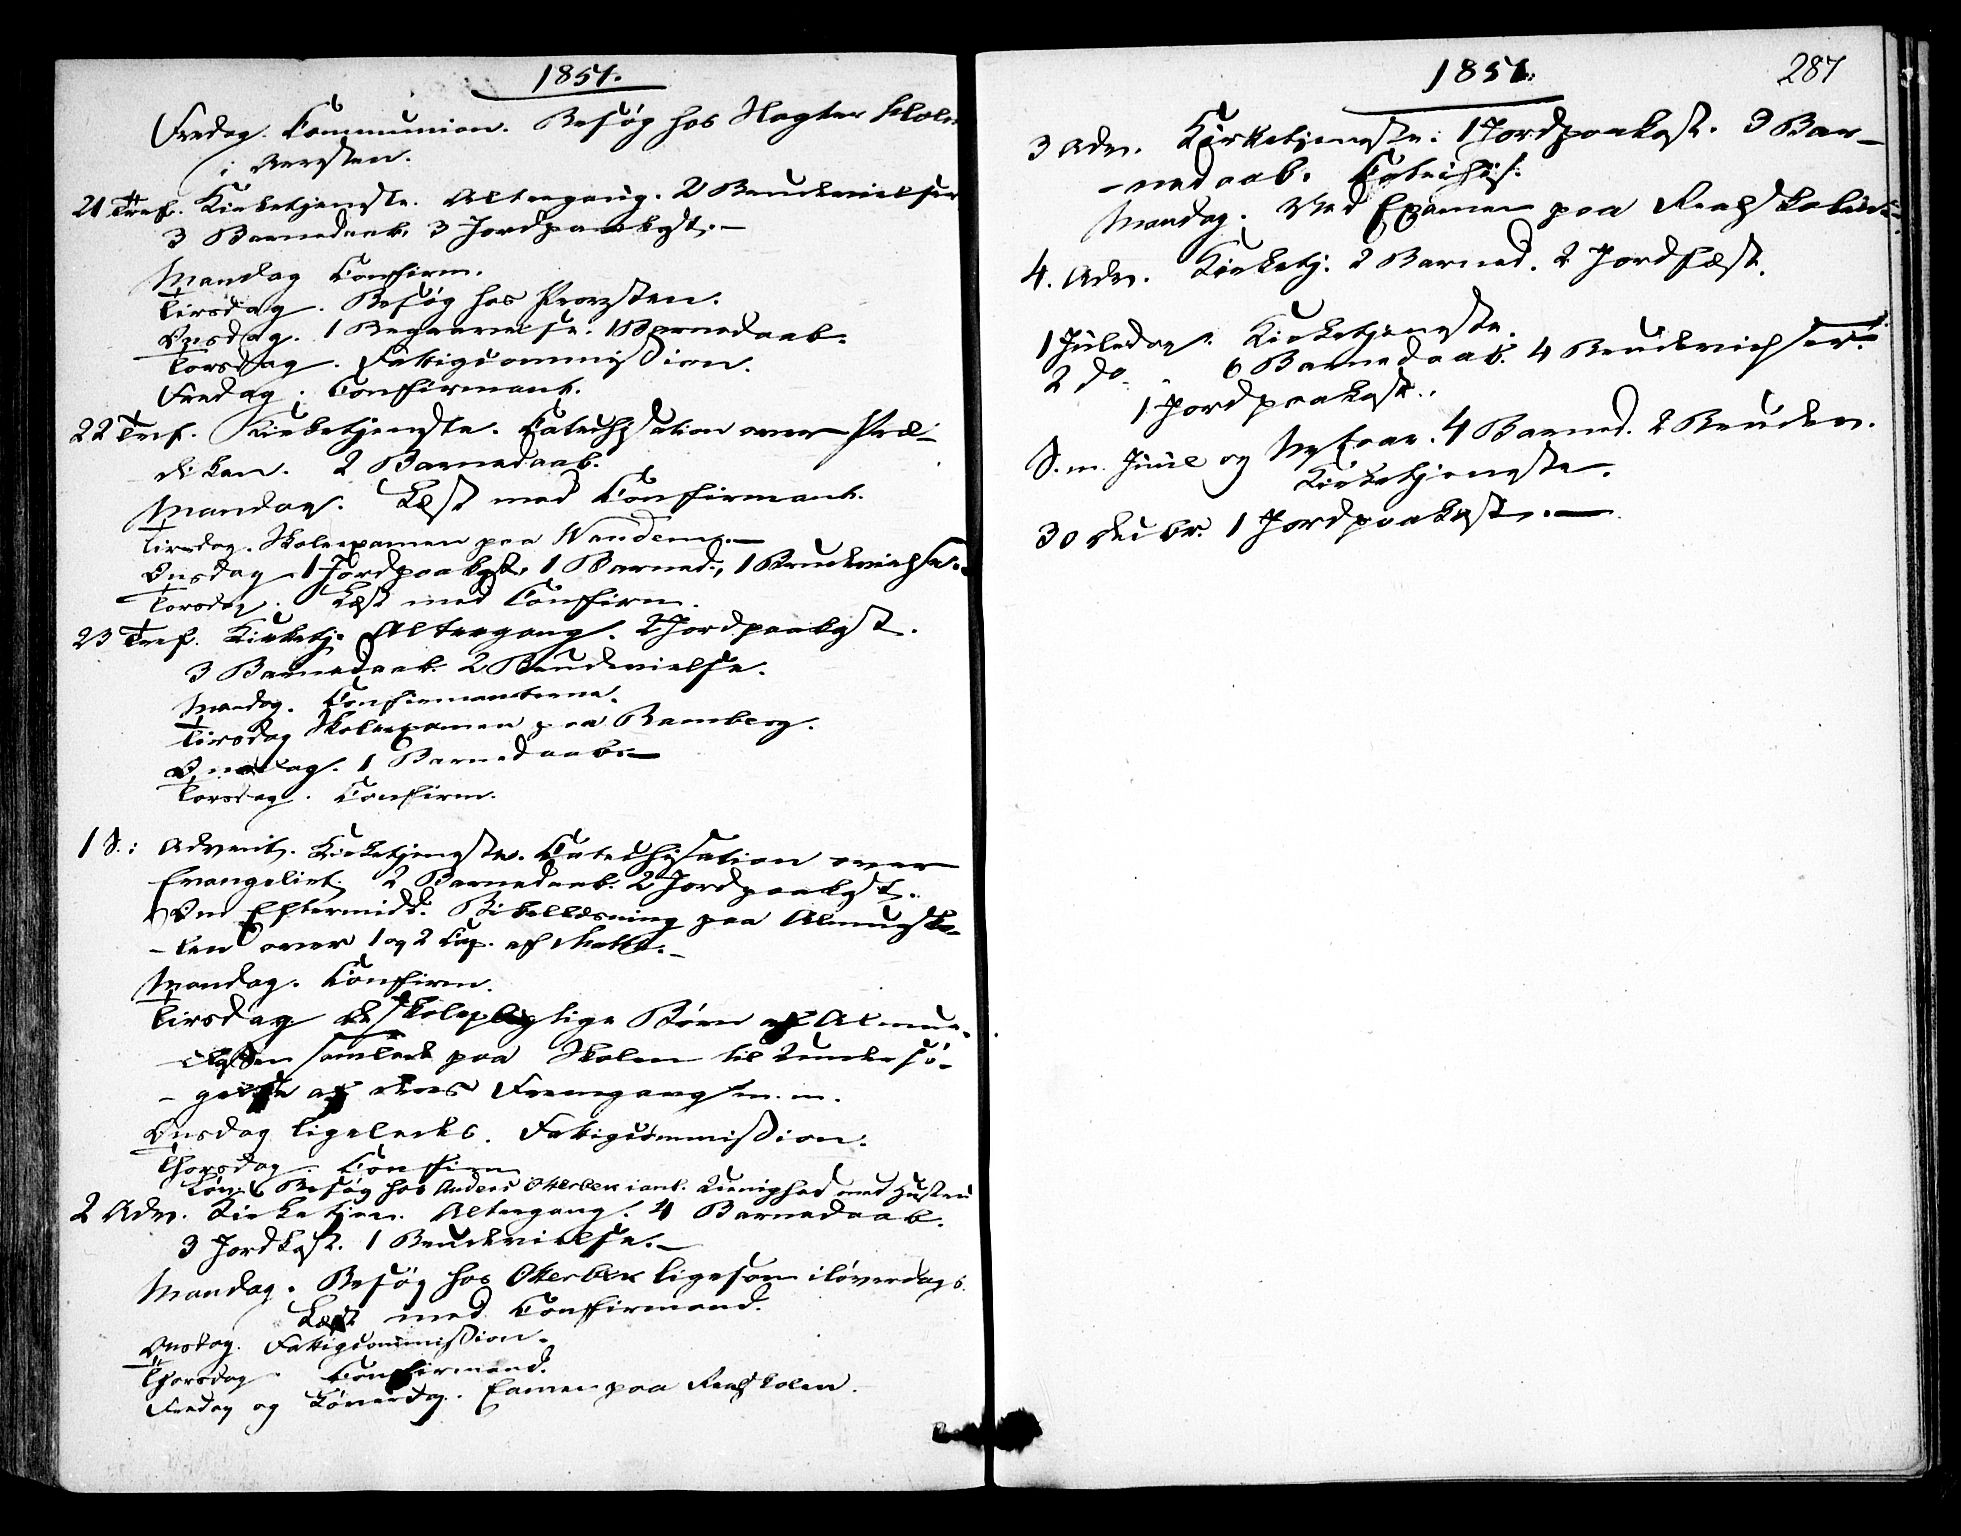 1851.
Fredag. Communion. Besøg hos Slagter Holm
i Arresten.
21 Tref. Kirketjeneste. Altergang. 2 Brudevielser
3 Barnedaab. 3 Jordpaakast. —
Mandag Confirm.
Tirsdag. Besøg hos Provsten.
Onsdag. 1 Begravelse. 1 Barnedaab.
Torsdag. Fattigcommission.
Fredag. Confirmant.
22 Tref. Kirketjeneste. Catechisation over Præ-
diken. 2 Barnedaab.
Mandag. Læst med Confirmant.
Tirsdag. Skoleexamen paa
Onsdag 1 Jordpaakast, 1 Barned., 1 Brudevielse.
Torsdag. Læst med Confirm.
23 Tref. Kirketj. Altergang. 2 Jordpaakast.
3 Barnedaab. 2 Brudevielse.
Mandag. Confirmanterne.
Tirsdag Skoleexamen paa Bamberg.
Onsdag. 1 Barnedaab. —
Torsdag. Confirm.
1 S.: Advent. Kirketjeneste. Catechisation over
Evangeliet. 2 Barnedaab. 2 Jordpaakast.
Om Eftermidd. Bibellæsning paa Almuesko-
len over 1 og 2 Cap. af Matth. —
Mandag. Confirm.
Tirsdag de skolepligtige Børn af Almue-
classen samlede paa Skolen til Undersø-
-gelse af deres Fremgang m. m.
Onsdag ligeledes. Fattigcommission.
Thorsdag. Confirm
Løv. Besøg hos Anders Otterbek i anl. Uenighed med Hustru
2 Adv. Kirketjen. Altergang. 4 Barnedaab.
3 Jordkast. 1 Brudevielse. —
Mandag. Besøg hos Otterbek ligesom i Løverdags.
Læst med Confirmand.
Onsdag. Fattigcommission.
Thorsdag. Confirmand.
Fredag og Løverdag. Examen paa Realskolen.
1851.
287
3 Adv. Kirketjeneste. 1 Jordpaakast. 3 Bar-
-nedaab. Catechis.
Mandag. Ved Examen paa Realskolen.
4. Adv. Kirketj. 2 Barned. 2 Jordfæst.
1 Juledag. Kirketjeneste.
2 do. 6 Barnedaab. 4 Brudevielser.
1 Jordpaakast.
S. m. Juul og Nytaar. 4 Barned. 2 Brudev.
Kirketjeneste.
30 Decbr. 1 Jordpaakast. —